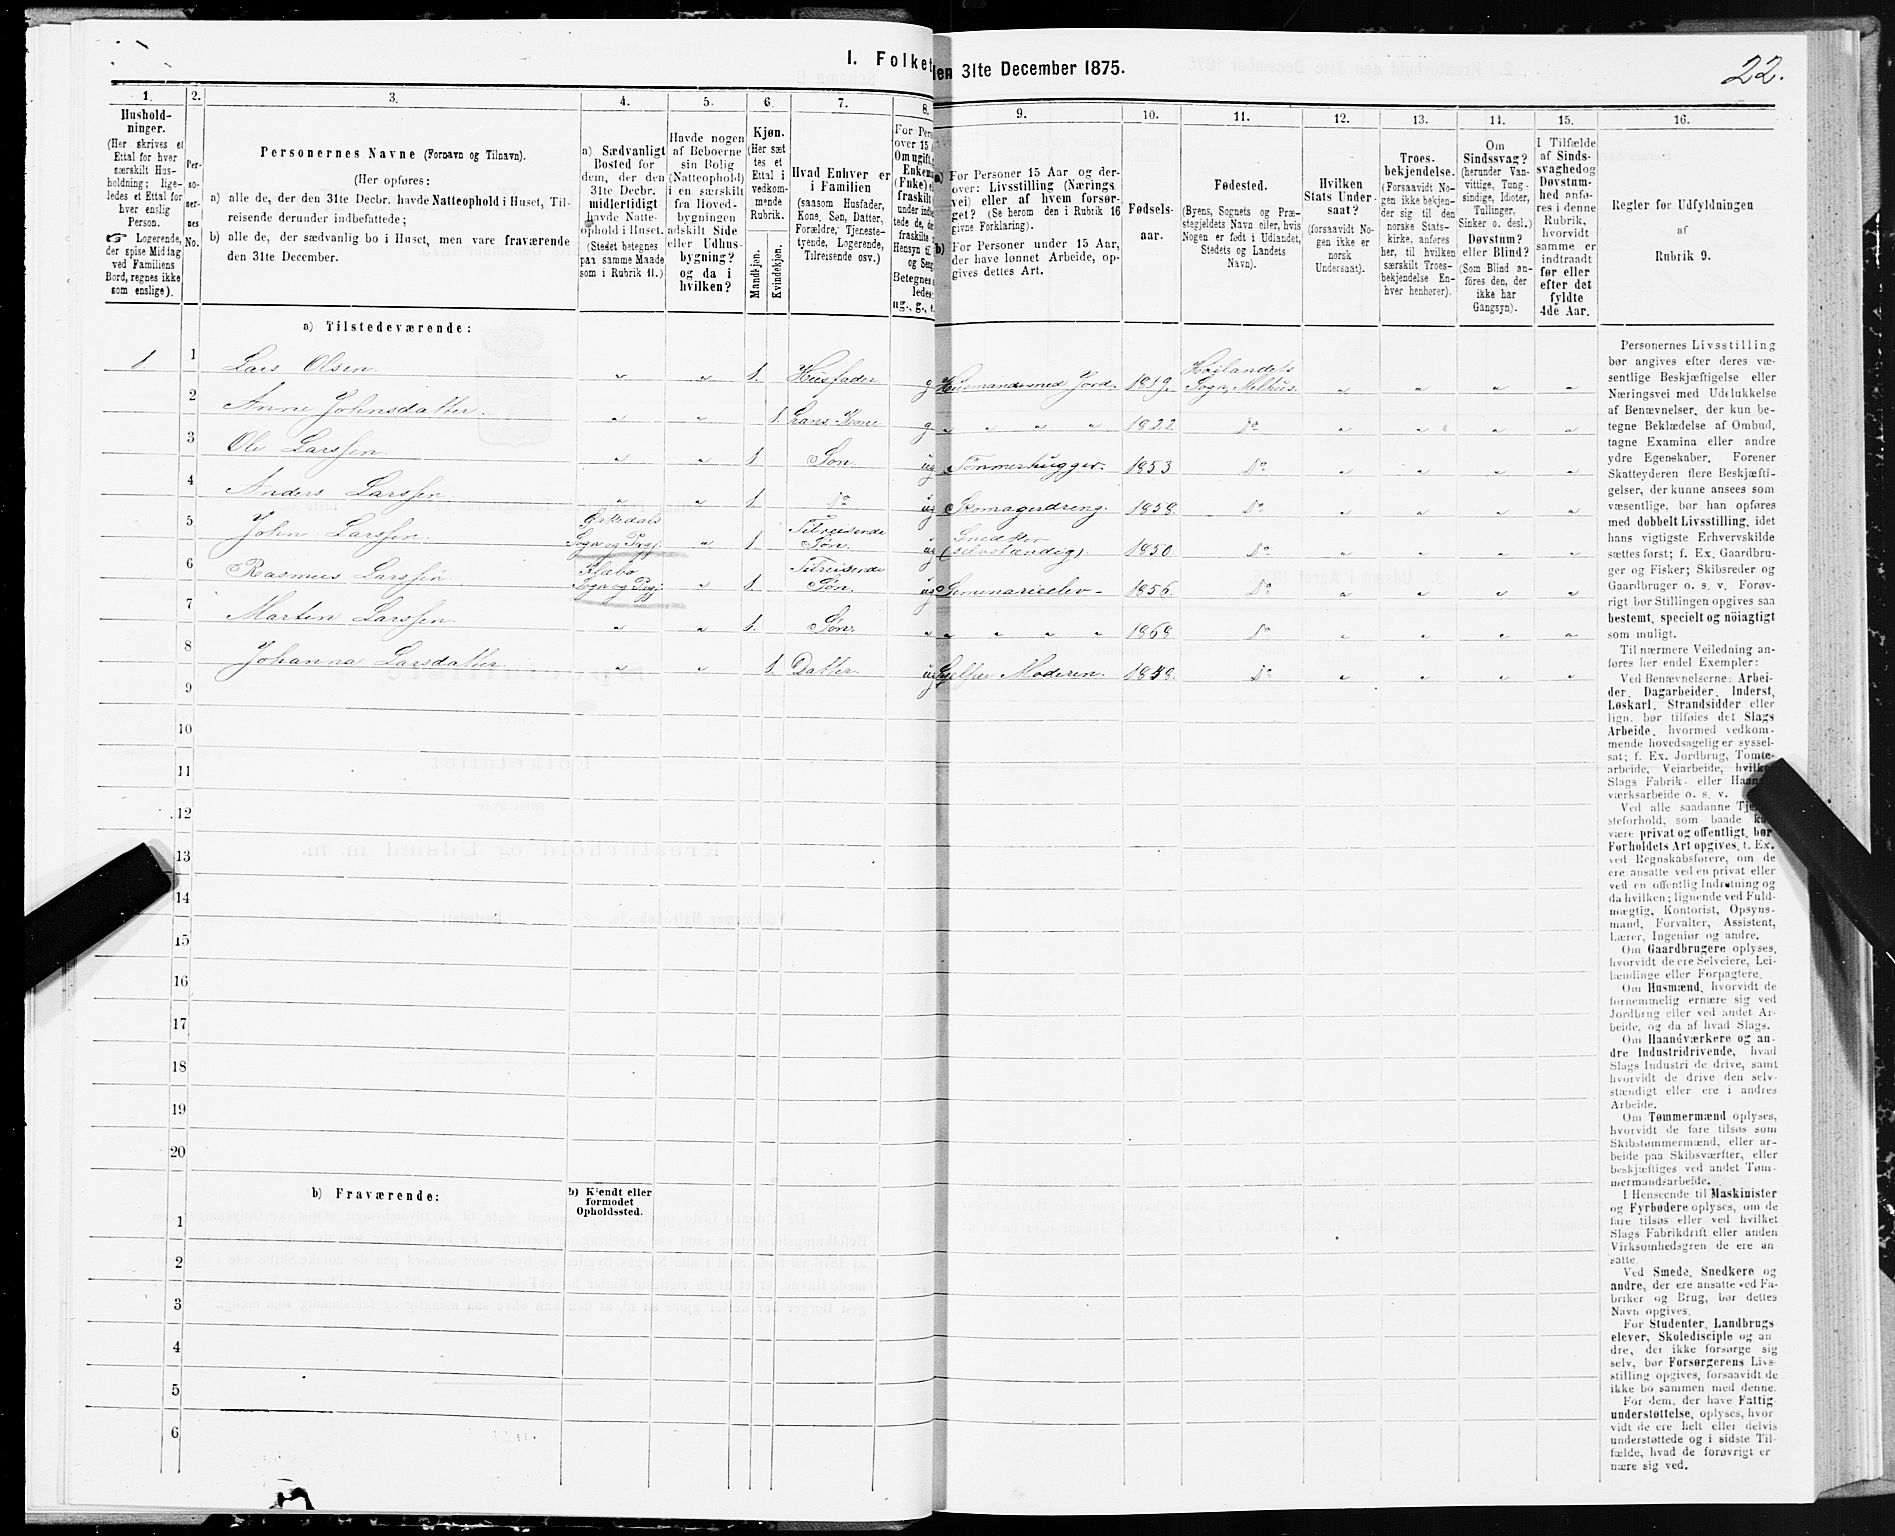 22.
I. Folket
den 31te December 1875.
1. 2. 3. 4. 5. 6. 7. 8. 9. 10. 11. 12. 13. 14. 15. 16.
Hushold-
ninger.
(Her skrives et
Ettal for hver
særskilt Hus-
holdning; lige-
ledes et Ettal for
hver enslig
Person.
☞ Logerende,
der spise Middag
ved Familiens
Bord, regnes ikke
som enslige).
Per-
so-
ner-
nes
No.
Personernes Navne (Fornavn og Tilnavn).
(Her opføres:
a) alle de, der den 31te Decbr. havde Natteophold i Huset, Til-
reisende derunder indbefattede;
b) alle de, der sædvanlig bo i Huset, men vare fraværende
den 31te December.
a) Sædvanligt
Bosted for
dem, der den
31te Decbr.
midlertidigt
havde Natte-
ophold i Huset.
(Stedet betegnes
paa samme Maade
som i Rubrik 11.)
Havde nogen
af Beboerne
sin Bolig
(Natteophold)
i en særskilt
fra Hoved-
bygningen
adskilt Side
eller Udhus-
bygning?
og da i
hvilken?
Kjøn.
(Her sæt
tes et
Ettal i
vedkom-
mende
Rubrik.
Mandkjøn.
Kvindekjøn.
Hvad Enhver er
i Familien
(saasom Husfader,
Kone, Søn, Datter,
Forældre, Tjeneste-
tyende, Logerende,
Tilreisende osv.)
For Pers
over 15 A
Om ugift,
Enkema
(Enke) e
fraskilt
under indbe
tede de, de
fraskilte
Hensyn til
og Seng
Betegnes
ledes:
ug., g., e.
a) For Personer 15 Aar og der-
over: Livsstilling (Nærings
vei) eller af hvem forsør-
get? (Se herom den i Rubrik 16
givne Forklaring).
b) For Personer under 15 Aar,
der have lønnet Arbeide, op-
gives dettes Art.
Fødsels-
aar.
Fødested.
(Byens, Sognets og Præ-
stegjeldets Navn eller, hvis
Nogen er født i Udlandet,
Stedets og Landets
Navn).
Hvilken
Stats Under-
saat?
(forsaavidt No-
gen ikke er
norsk
Undersaat).
Troes-
bekjendelse.
(Forsaavidt No-
gen ikke bekjen-
der sig til den
norske Stats-
kirke, anføres
her, til hvilken
særskilt Troes-
bekjendelse En-
hver henhører).
Om
Sindssvag?
(herunder Van-
vittige, Tung-
sindige, Idioter,
Tullinger,
Sinker o. desl.)
Døvstum?
eller Blind?
(Som Blind an-
føres den, der
ikke har
Gangsyn).
I Tilfælde
af Sinds-
svaghed og
Døvstum-
hed anfø-
res i denne
Rubrik,
hvorvidt
samme er
indtraadt
før eller
efter det
fyldte
4de Aar.
Regler for Udfyldningen
af
Rubrik 9.
a) Tilstedeværende:
1. 1 Lars Olsen „ „ 1. Husfader g Husmand med Jord. 1819. Høilandets Sogn, Melhus. „ „ „ „
2 Anne Johnsdatter. „ „ 1. Hans Kone g „ „ „ „ 1822 Do „ „ „ „
3 Ole Larssen. „ „ 1 Søn. ug Tømmerhugger. 1853 Do „ „ „ „
4 Anders Larssen „ „ 1. Do ug Skomagerdreng. 1858. Do „ „ „ „
5 John Larssen Sogn og Prgj. „ 1. Tilreisende Søn. ug Snedker (selvstændig). 1850 Do „ „ „ „
6 Rasmus Larssen Klæbo Sogn og Prgj. „ 1. Tilreisende Søn. ug Seminarieelev 1856. Do „ „ „ „
7 Marten Larssen. „ „ 1. Søn. „ „ „ „ „ 1868 Do „ „ „ „
8 Johanna Larsdatter. „ „ 1. Datter. ug Hjelper Moderen. Do „ „ „ „
9
10
11
12
13
14
15
16
17
18
19
20
b) Fraværende:
b) Kjendt eller
formodet
Opholdssted.
1
2
3
4
5
6
Personernes Livsstilling
bør angives efter deres væ-
sentlige Beskjæftigelse eller
Næringsvei med Udelukkelse
af Benævnelser, der kun be-
tegne Beklædelse af Ombud,
tagne Examina eller andre
ydre Egenskaber. Forener
Skatteyderen flere Beskjæfti-
gelser, der kunne ansees som
væsentlige, bør han opføres
med dobbelt Livsstilling, idet
hans vigtigste Erhvervskilde
sættes først; f. Ex. Gaardbru-
ger og Fisker; Skibsreder og
Gaardbruger o. s. v. Forøv-
rigt bør Stillingen opgives saa
bestemt, specielt og nöiagtigt
som muligt.
Til nærmere Veiledning an-
føres her endel Exempler:
Ved Benævnelserne: Arbei-
der, Dagarbeider, Inderst,
Løskarl, Strandsidder eller
lign. bør tilføies det Slags
Arbeide, hvormed vedkom-
mende hovedsagelig er syssel-
sat; f. Ex. Jordbrug, Tomte-
arbeide, Veiarbeide, hvilket
Slags Fabrik- eller Haand-
værksarbeide o. s. v.
Ved alle saadanne Tje-
steforhold, som baade kan
være privat og offentligt, bør
Forholdets Art opgives, t. Ex.
ved Regnskabsførere, om de
ere ansatte ved en privat eller
ved en offentlig Indretning og
da hvilken; lignende ved Fuld-
mægtig, Kontorist, Opsyns-
mand, Forvalter, Assistent,
Lærer, Ingeniør og andre.
Om Gaardbrugere oplyses,
hvorvidt de ere Selveiere, Lei-
lændinge eller Forpagtere.
Om Husmænd, hvorvidt de
fornemmelig ernære sig ved
Jordbrug eller ved andet Ar-
beide, og da af hvad Slags.
Om Haandværkere og an-
dre Industridrivende, hvad
Slags Industri de drive, samt
hvorvidt de drive den selv-
stændigt eller ere i andres
Arbeide.
Om Tømmermænd oplyses,
hvorvidt de fare tilsøs som
Skibstømmermænd, eller ar-
beide paa Skibsværfter, eller
beskjæftiges ved andet Tøm-
mermandsarbeide.
I Henseende til Maskinister
og Fyrbødere oplyses, om de
fare tilsøs eller ved hvilket
Slags Fabrikdrift eller anden
Virksomhedsgren de ere an
satte.
Ved Smede, Snedkere og
andre, der ere ansatte ved Fa-
briker og Brug, bør dettes
Navn opgives.
For Studenter, Landbrugs-
elever, Skoledisciple og an
dre, der ikke forsørge sig
selv, bør Forsørgerens Livs-
stilling opgives, forsaavidt de
ikke bo sammen med denne.
For dem, der have Fattig-
understøttelse, oplyses, hvor
vidt de ere helt eller delvis
understøttede og i sidste Til-
fælde, hvad de forøvrigt er
nære sig ved.